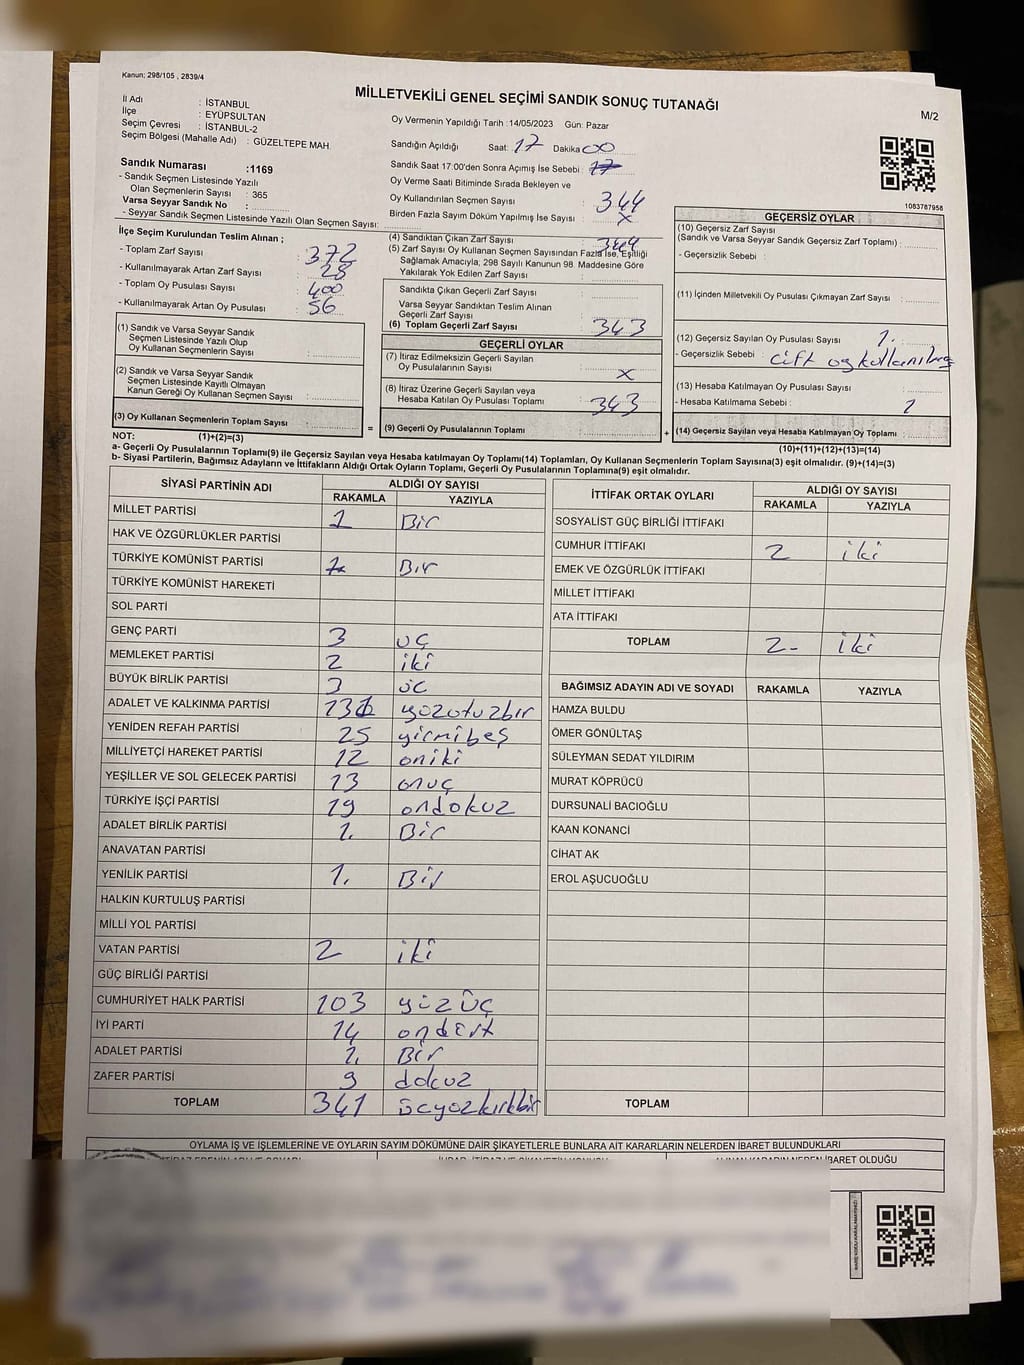 Kanun; 298/105 , 2839/4
MİLLETVEKİLİ GENEL SEÇİMİ SANDIK SONUÇ TUTANAĞI
M/2
İl Adı : İSTANBUL
İlçe : EYÜPSULTAN
Seçim Çevresi : İSTANBUL-2
Seçim Bölgesi (Mahalle Adı) : GÜZELTEPE MAH.
Oy Vermenin Yapıldığı Tarih :14/05/2023 Gün: Pazar
Sandığın Açıldığı Saat: 17 Dakika 00
Sandık Saat 17:00'den Sonra Açımış İse Sebebi :
Oy Verme Saati Bitiminde Sırada Bekleyen ve
Oy Kullandırılan Seçmen Sayısı : 344
Birden Fazla Sayım Döküm Yapılmış İse Sayısı : x
1083787958
Sandık Numarası :1169
- Sandık Seçmen Listesinde Yazılı
Olan Seçmenlerin Sayısı : 365
Varsa Seyyar Sandık No :
- Seyyar Sandık Seçmen Listesinde Yazılı Olan Seçmen Sayısı:
İlçe Seçim Kurulundan Teslim Alınan ;
- Toplam Zarf Sayısı : 372
- Kullanılmayarak Artan Zarf Sayısı : 28
- Toplam Oy Pusulası Sayısı : 400
- Kullanılmayarak Artan Oy Pusulası : 56
(1) Sandık ve Varsa Seyyar Sandık
Seçmen Listesinde Yazılı Olup
Oy Kullanan Seçmenlerin Sayısı :
(2) Sandık ve Varsa Seyyar Sandık
Seçmen Listesinde Kayıtlı Olmayan
Kanun Gereği Oy Kullanan Seçmen Sayısı :
(3) Oy Kullanan Seçmenlerin Toplam Sayısı :
(4) Sandıktan Çıkan Zarf Sayısı : 344
(5) Zarf Sayısı Oy Kullanan Seçmen Sayısından Fazla İse, Eşitliği
Sağlamak Amacıyla; 298 Sayılı Kanunun 98. Maddesine Göre
Yakılarak Yok Edilen Zarf Sayısı
Sandıkta Çıkan Geçerli Zarf Sayısı :
Varsa Seyyar Sandıktan Teslim Alınan
Geçerli Zarf Sayısı :
(6) Toplam Geçerli Zarf Sayısı : 343
GEÇERLİ OYLAR
(7) İtiraz Edilmeksizin Geçerli Sayılan
Oy Pusulalarının Sayısı : x
(8) İtiraz Üzerine Geçerli Sayılan veya
Hesaba Katılan Oy Pusulası Toplamı : 343
= (9) Geçerli Oy Pusulalarının Toplamı :
GEÇERSİZ OYLAR
(10) Geçersiz Zarf Sayısı
(Sandık ve Varsa Seyyar Sandık Geçersiz Zarf Toplamı) :
- Geçersizlik Sebebi :
(11) İçinden Milletvekili Oy Pusulası Çıkmayan Zarf Sayısı :
(12) Geçersiz Sayılan Oy Pusulası Sayısı : 1.
- Geçersizlik Sebebi : Çift oy kullanılmış
(13) Hesaba Katılmayan Oy Pusulası Sayısı :
- Hesaba Katılmama Sebebi : 1
+ (14) Geçersiz Sayılan veya Hesaba Katılmayan Oy Toplamı :
NOT: (1)+(2)=(3)
(10)+(11)+(12)+(13)=(14)
a- Geçerli Oy Pusulalarının Toplamı(9) ile Geçersiz Sayılan veya Hesaba katılmayan Oy Toplamı(14) Toplamları, Oy Kullanan Seçmenlerin Toplam Sayısına(3) eşit olmalıdır. (9)+(14)=(3)
b- Siyasi Partilerin, Bağımsız Adayların ve İttifakların Aldığı Ortak Oyların Toplamı, Geçerli Oy Pusulalarının Toplamına(9) eşit olmalıdır.
SİYASİ PARTİNİN ADI
ALDIĞI OY SAYISI
RAKAMLA YAZIYLA
MİLLET PARTİSİ 1 Bir
HAK VE ÖZGÜRLÜKLER PARTİSİ
TÜRKİYE KOMÜNİST PARTİSİ 1 Bir
TÜRKİYE KOMÜNİST HAREKETİ
SOL PARTİ
GENÇ PARTİ 3 üç
MEMLEKET PARTİSİ 2 iki
BÜYÜK BİRLİK PARTİSİ 3 üç
ADALET VE KALKINMA PARTİSİ 131 yüzotuzbir
YENİDEN REFAH PARTİSİ 25 yirmibeş
MİLLİYETÇİ HAREKET PARTİSİ 12 oniki
YEŞİLLER VE SOL GELECEK PARTİSİ 13 onuç
TÜRKİYE İŞÇİ PARTİSİ 19 ondokuz
ADALET BİRLİK PARTİSİ 1. Bir
ANAVATAN PARTİSİ
YENİLİK PARTİSİ 1. Bir
HALKIN KURTULUŞ PARTİSİ
MİLLİ YOL PARTİSİ
VATAN PARTİSİ 2 iki
GÜÇ BİRLİĞİ PARTİSİ
CUMHURİYET HALK PARTİSİ 103 yüzüç
İYİ PARTİ 14 ondört
ADALET PARTİSİ 1. Bir
ZAFER PARTİSİ 9 dokuz
TOPLAM 341 üçyüzkırkbir
İTTİFAK ORTAK OYLARI
ALDIĞI OY SAYISI
RAKAMLA YAZIYLA
SOSYALİST GÜÇ BİRLİĞİ İTTİFAKI
CUMHUR İTTİFAKI 2 iki
EMEK VE ÖZGÜRLÜK İTTİFAKI
MİLLET İTTİFAKI
ATA İTTİFAKI
TOPLAM 2- iki
BAĞIMSIZ ADAYIN ADI VE SOYADI RAKAMLA YAZIYLA
HAMZA BULDU
ÖMER GÖNÜLTAŞ
SÜLEYMAN SEDAT YILDIRIM
MURAT KÖPRÜCÜ
DURSUNALİ BACIOĞLU
KAAN KONANCİ
CİHAT AK
EROL AŞUCUOĞLU
TOPLAM
OYLAMA İŞ VE İŞLEMLERİNE VE OYLARIN SAYIM DÖKÜMÜNE DAİR ŞİKAYETLERLE BUNLARA AİT KARARLARIN NELERDEN İBARET BULUNDUKLARI
İBARET OLDUĞU